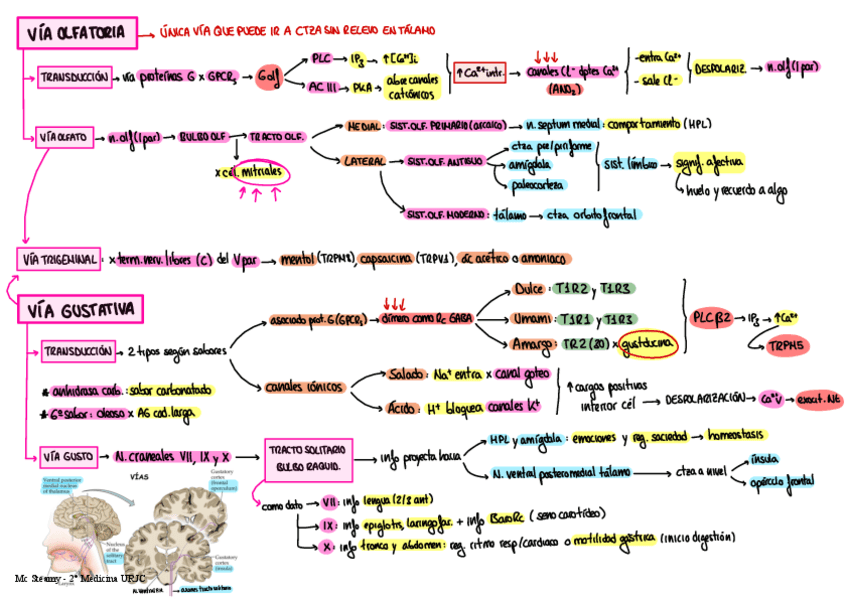 VÍA OLFATORIA → ÚNICA VÍA QUE PUEDE IR A CTZA SIN RELEVO EN TÁLAMO
TRANSDUCCIÓN → vía proteínas G x GPCRs → Golf
PLC → IP3 → ↑[Ca2+]i
AC III → PKA → abre canales catiónicos
↑Ca2+ intr. → canales Cl- dptes Ca2+ (ANO2)
-entra Ca2+
- sale Cl-
DESPOLARIZ → n.olf (I par)
VÍA OLFATO → n.olf (I par) → BULBO OLF. → TRACTO OLF.
x cél. mitriales
MEDIAL: SIST. OLF. PRIMARIO (arcaico) → n. septum medial: comportamiento (HPL)
LATERAL → SIST. OLF. ANTIGUO
ctza pre/piriforme
amígdala
paleocorteza
sist. límbico → signif. afectiva
huelo y recuerdo a algo
SIST. OLF. MODERNO: tálamo → ctza orbitofrontal
VÍA TRIGEMINAL: x term. nerv. libres (C) del V par → mentol (TRPM8), capsaicina (TRPV1), ác acético o amoniaco
VÍA GUSTATIVA
TRANSDUCCIÓN → 2 tipos según sabores
* anhidrasa carb.: sabor carbonatado
* 6º sabor: oleoso x AG cad. larga
asociado prot. G (GPCRs) → dímero como Rc GABA
Dulce: T1R2 y T1R3
Umami: T1R1 y T1R3
Amargo: TR2 (30) x gustducina
PLC β2 → IP3 → ↑Ca2+
TRPM5
canales iónicos
Salado: Na+ entra x canal goteo
Ácido: H+ bloquea canales K+
↑ cargas positivas
interior cél → DESPOLARIZACIÓN → Ca2+i → exocit. NT
VÍA GUSTO → N. craneales VII, IX y X → TRACTO SOLITARIO
BULBO RAQUID.
info proyecta hacia
HPL y amígdala: emociones y reg. saciedad → homeostasis
N. ventral posteromedial tálamo → ctza a nivel
ínsula
opérculo frontal
como dato → VII: info lengua (2/3 ant)
IX: info epiglotis, laringofar. + info BaroRc (seno carotídeo)
X: info tronco y abdomen: reg. ritmo resp/cardiaco o motilidad gástrica (inicio digestión)
VÍAS
Ventral posterior
medial nucleus
of thalamus
Gustatory
cortex
(frontal
operculum)
Nucleus
of the
solitary
tract
Gustatory
cortex
(insula)
Mc Steamy - 2º Medicina URJC